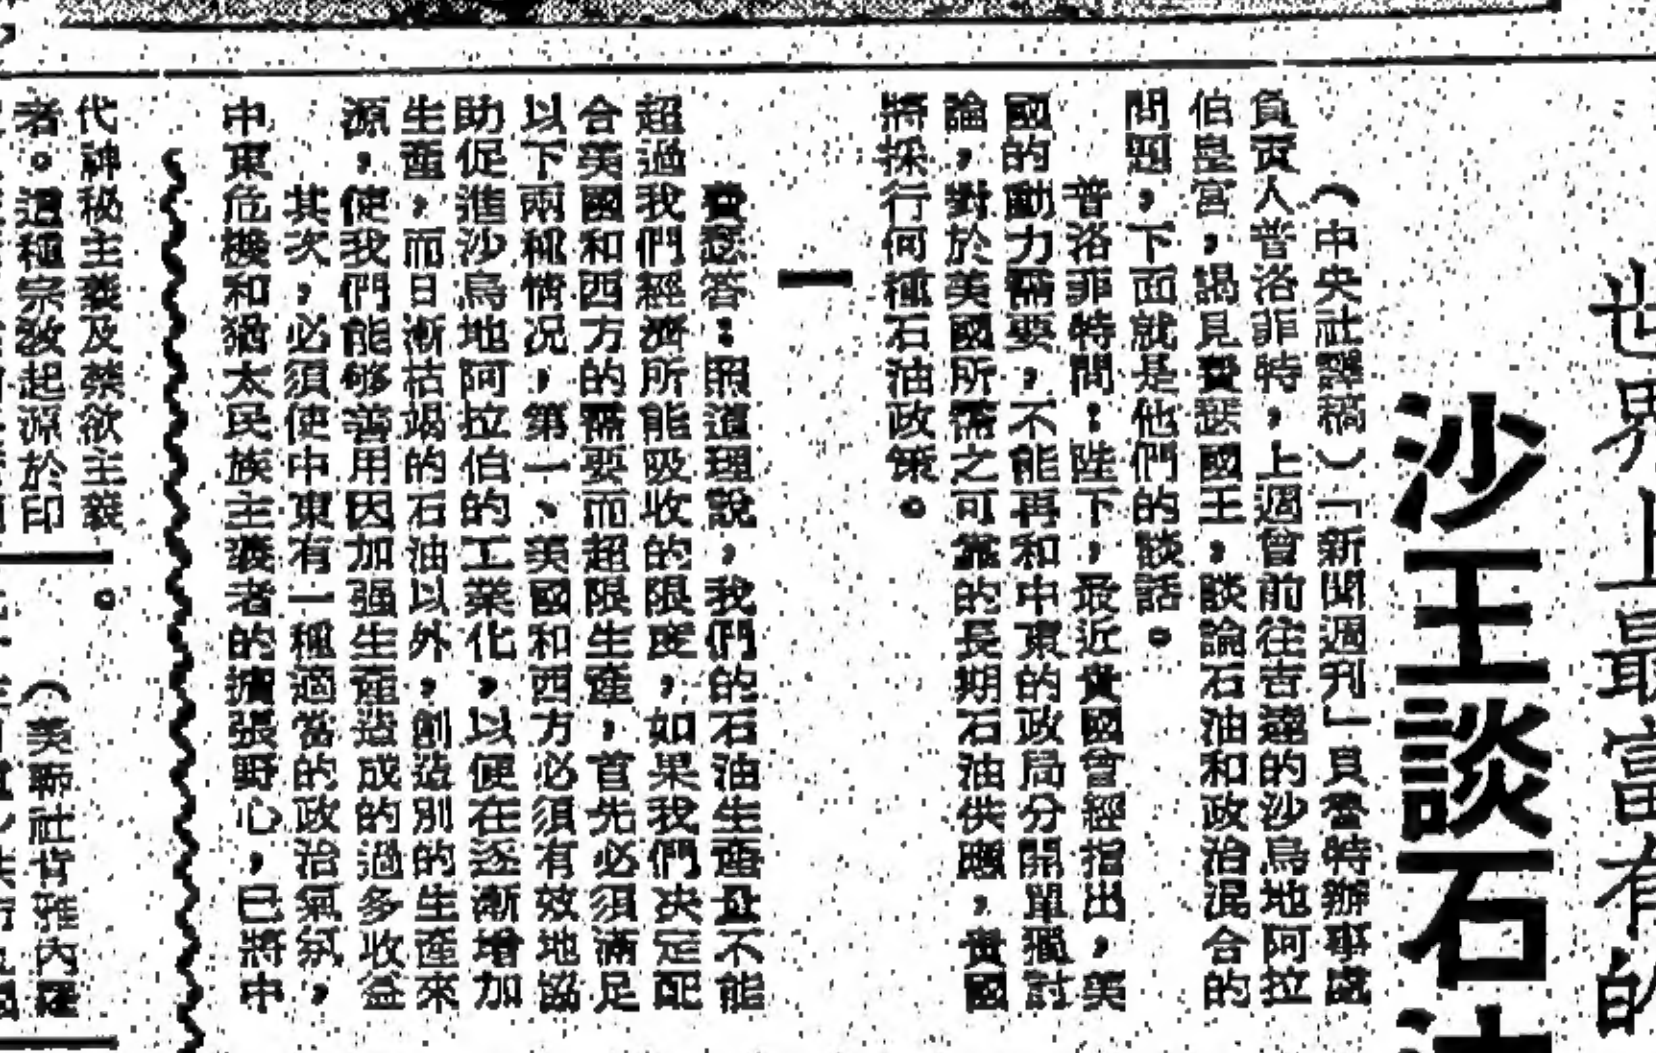 世界上最富有的
沙王談石油
（中央社譯稿）「新聞週刊」貝魯特辦事處
負責人普洛菲特，上週曾前往吉達的沙烏地阿拉
伯皇宮，謁見費瑟國王，談論石油和政治混合的
問題，下面就是他們的談話。
普洛菲特問：陛下，最近貴國曾經指出，美
國的動力需要，不能再和中東的政局分開單獨討
論，對於美國所需之可靠的長期石油供應，貴國
將採行何種石油政策。
費瑟答：照道理說，我們的石油生產量不能
超過我們經濟所能吸收的限度，如果我們決定配
合美國和西方的需要而超限生產，首先必須滿足
以下兩種情況，第一、美國和西方必須有效地協
助促進沙烏地阿拉伯的工業化，以便在逐漸增加
生產，而日漸枯竭的石油以外，創造別的生產來
源，使我們能够善用因加强生產造成的過多收益
其次，必須使中東有一種適當的政治氣氛，
中東危機和猶太民族主義者的擴張野心，已將中
代神秘主義及禁欲主義
者。這種宗教起源於印
。
（美聯社肯雅內羅